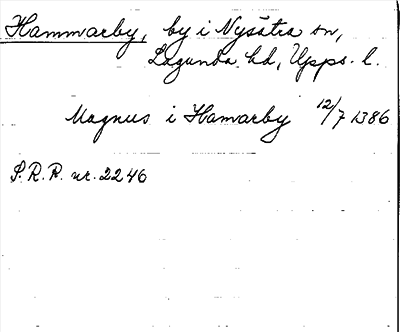 Hammarby, by i Nysätra sn,
Lagunda hd, Upps. l.
Magnus i Hamarby 12/7 1386
S.R.R. nr. 2246